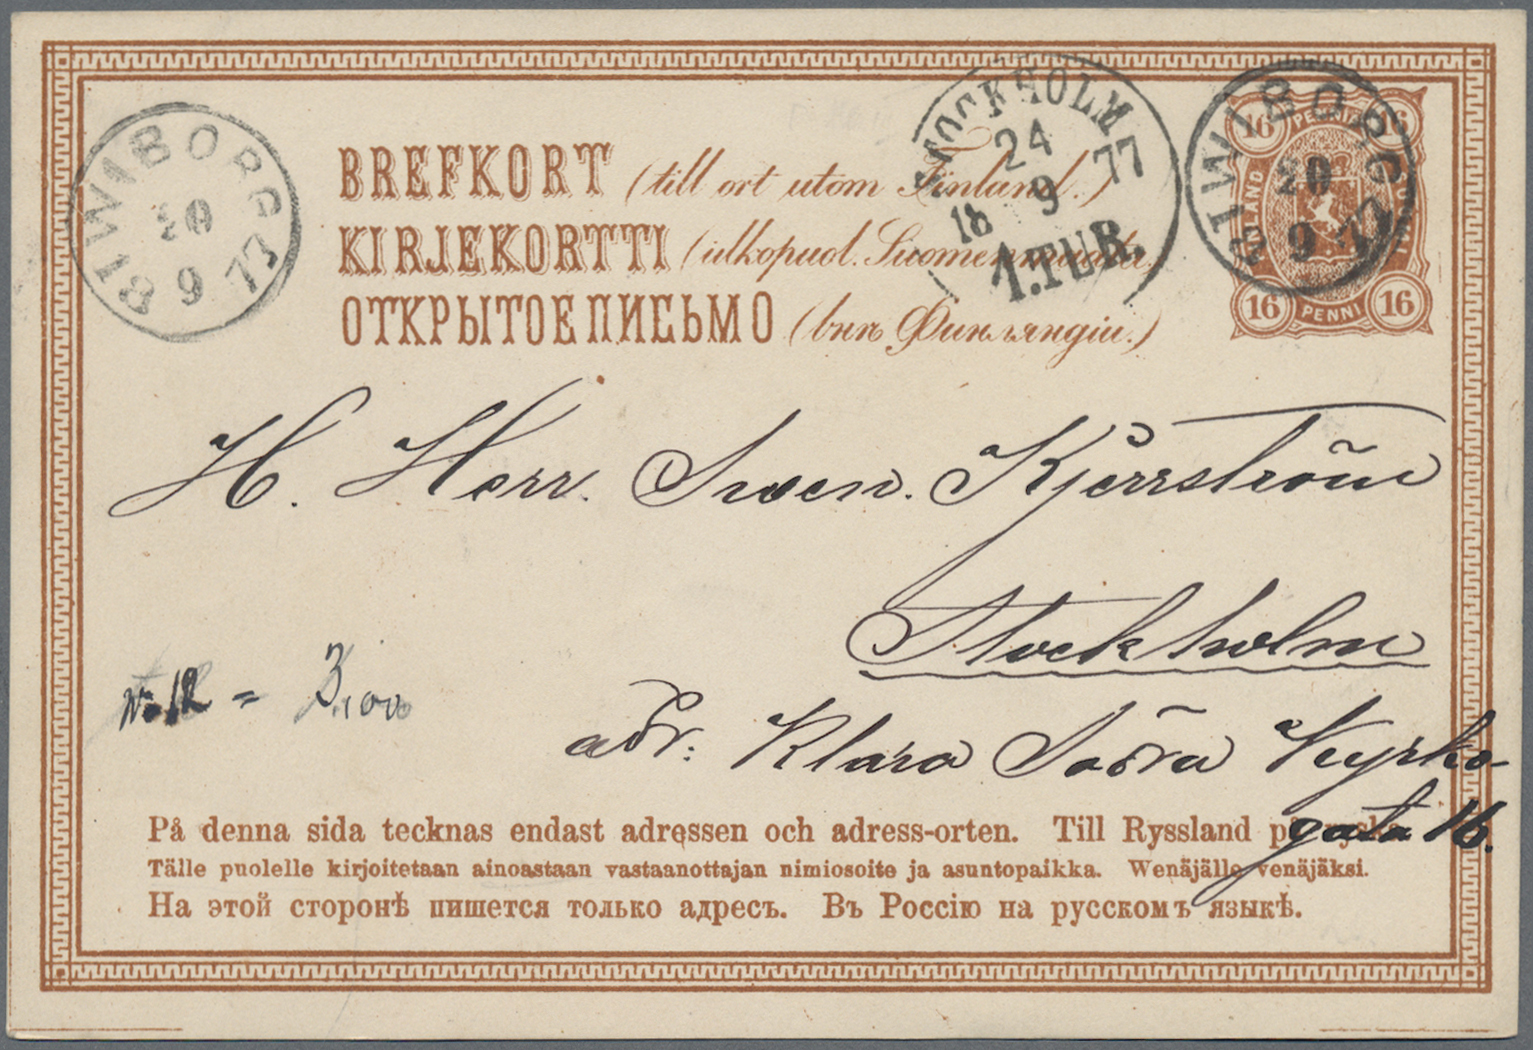 BREFKORT (till ort utom Finland.)
KIRJEKORTTI (ulkopuol. Suomenmaata.)
ОТКРЫТОЕ ПИСЬМО (внѣ Финляндіи.)
WIBORG
20
9
1877
STOCKHOLM
24
9
18 77
1.TUR.
WIBORG
20
9
1877
16 PENNIÄ 16
16 PENNI 16
H. Herr. Sven. Kjerrström
Stockholm
No 12 = 3,00
adr: Klara Södra Kyrko-
gata 16.
På denna sida tecknas endast adressen och adress-orten. Till Ryssland på
Tälle puolelle kirjoitetaan ainoastaan vastaanottajan nimiosoite ja asuntopaikka. Wenäjälle venäjäksi.
На этой сторонѣ пишется только адресъ. Въ Россію на русскомъ языкѣ.